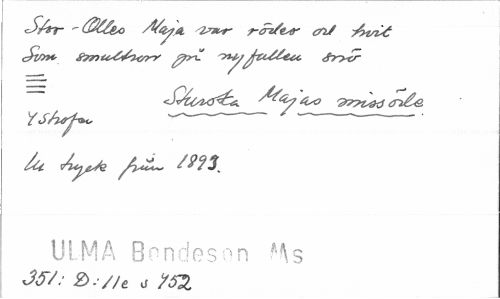 Stor-Olles Maja var röder och hvit
Som smultron på nyfallen snö
Sturska Majas missöde.
7 Strofer
Ur tryck från 1893.
ULMA Bondeson Ms
351: D: 11e s 452